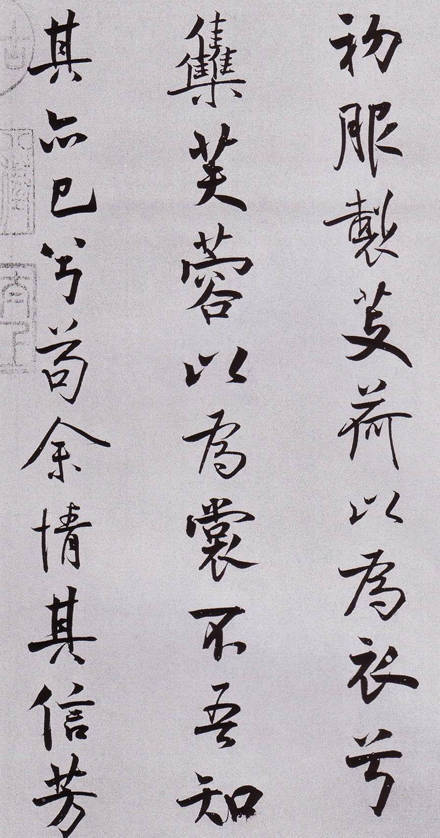 初服製芰荷以為衣兮
集芙蓉以為裳不吾知
其亦已兮苟余情其信芳